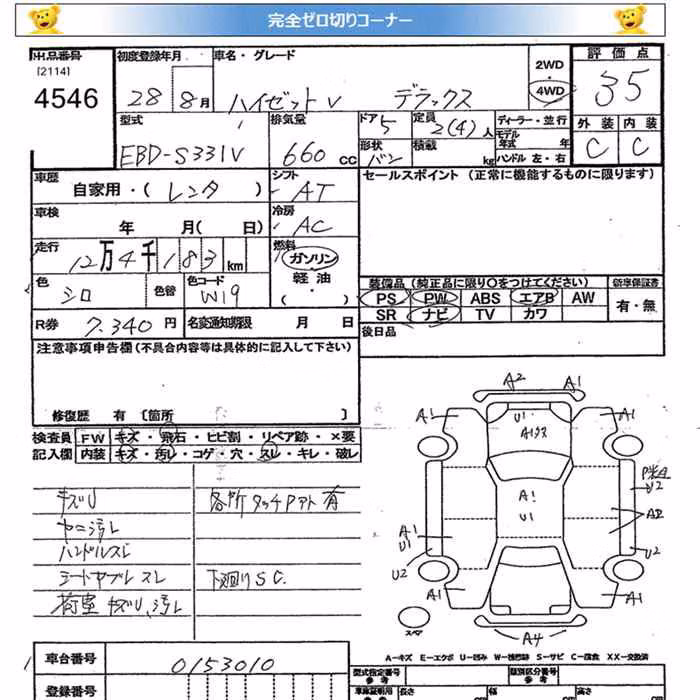 完全ゼロ切りコーナー
出品番号
(2114)
4546
初度登録年月
28 8月
車名・グレード
ハイゼットV デラックス
2WD
4WD
評価点
3.5
外装 内装
C C
型式
EBD-S331V
排気量
660 cc
ドア 5
形状 バン
定員 2(4)人
積載 kg
ディーラー・並行
モデル年式 年
ハンドル 左・右
車歴
自家用・(レンタ)
シフト
AT
車検
年 月( 日)
冷房
AC
走行
12万4千183km
燃料
ガソリン
軽油
・( )
色
シロ
色替
色コード
W19
R券 7,340円
名変通知期限 月 日
セールスポイント(正常に機能するものに限ります)
装備品(純正品に限り○をつけてください)
新車保証書
PS PW ABS エアB AW
SR ナビ TV カワ
有・無
後日品
注意事項申告欄(不具合内容等は具体的に記入して下さい)
修復歴 有〔箇所 〕
検査員記入欄
FW キズ・飛石・ヒビ割・リペア跡・×要
内装 キズ・汚レ・コゲ・穴・スレ・キレ・破レ
キズU
ヤニ汚レ
ハンドルスレ
シートヤブレ スレ
荷室 キズU、汚レ
各所タッチP有
下廻りSC.
A2 A1
A1 U1 A1
A1
U2
A1
U1
A1
U1
A2
U2 U2
A1 A1
スペア
A4
A-キズ E-エクボ U-凹み W-補修跡 S-サビ C-腐食 XX-交換済
車台番号
0153010
登録番号
型式指定番号 参考
類別区分番号 参考
車庫証明用 参考
長さ
幅
高さ
cm cm cm